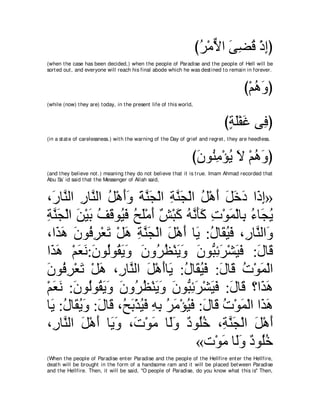 (إِذْ قُضِىَ الاٌّمْرُ)
(when the case has been decided,) when the people of Paradise and the people of Hell will be
sorted out, and everyone will reach his final abode which he was destined to remain in forever.
(وَهُمْ)
(while (now) they are) today, in the present life of this world,
(فِى غَفْلَةٍ)
(in a state of carelessness.) with the warning of the Day of grief and regret, they are heedless.
(وَهُمْ لاَ يُؤْمِنُونَ)
(and they believe not.) meaning they do not believe that it is true. Imam Ahmad recorded that
Abu Sa`id said that the Messenger of Allah said,
«إِذَا دَخَلَ أَهْلُ الْجَنَّةِ الْجَنَّةَ وَأَهْلُ النَّارِ النَّارَ،
يُجَاءُ بِالْمَوْتِ كَأَنَّهُ كَبْشٌ أَمْلَحُ فَيُوقَفُ بَيْنَ الْجَنَّةِ
وَالنَّارِ، فَيُقَالُ: يَا أَهْلَ الْجَنَّةِ هَلْ تَعْرِفُونَ هَذَا،
قَالَ: فَيَشْرَئِبُّونَ وَيَنْظُرُونَ وَيَقُولُونَ:نَعَمْ هَذَا
الْمَوْتُ قَالَ: فَيُقَالُ: يَاأَهْلَ النَّارِ، هَلْ تَعْرِفُونَ
هَذَا؟ قَالَ: فَيَشْرَئِبُّونَ وَيَنْظُرُونَ وَيَقُولُونَ: نَعَمْ
هَذَا الْمَوْتُ قَالَ: فَيُؤْمَرُ بِهِ فَيُذْبَحُ، قَالَ: وَيُقَالُ: يَا
أَهْلَ الْجَنَّةِ، خُلُودٌ وَلَا مَوْتَ، وَيَا أَهْلَ النَّارِ،
خُلُودٌ وَلَا مَوْت»
(When the people of Paradise enter Paradise and the people of the Hellfire enter the Hellfire,
death will be brought in the form of a handsome ram and it will be placed between Paradise
and the Hellfire. Then, it will be said, "O people of Paradise, do you know what this is'' Then,